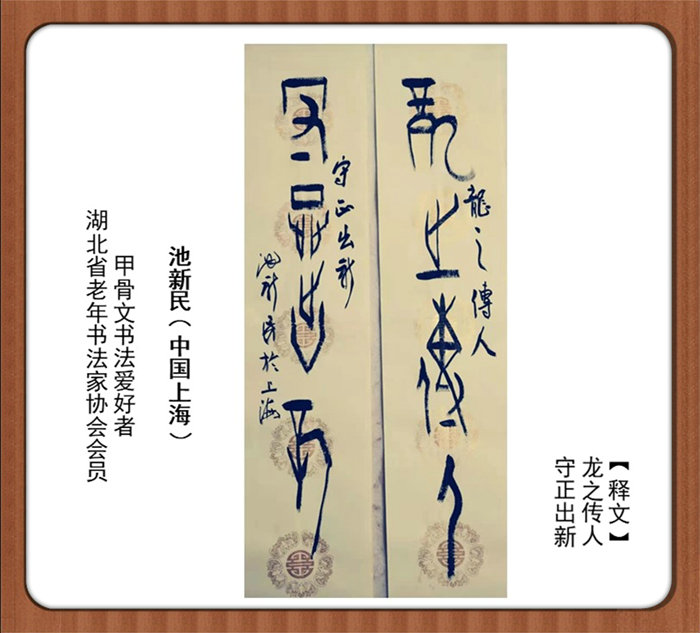 【释文】
龙之传人
守正出新
龍之傳人
龍之傳人
守正出新
守正出新
池新民於上海
池新民（中国上海）
甲骨文书法爱好者
湖北省老年书法家协会会员